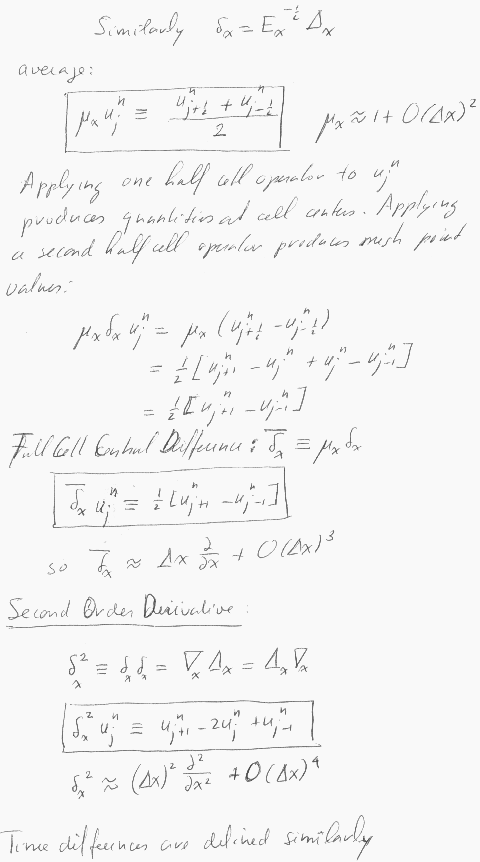 Similarly δₓ = Eₓ^{-1/2} Δₓ
average:
μₓ uⱼⁿ ≡ (uⁿ_{j+1/2} + uⁿ_{j-1/2}) / 2    μₓ ≈ 1 + O(Δx)²
Applying one half cell operator to uⱼⁿ
produces quantities at cell centers. Applying
a second half cell operator produces mesh point
values:
μₓ δₓ uⱼⁿ = μₓ (uⁿ_{j+1/2} - uⁿ_{j-1/2})
= 1/2 [uⁿ_{j+1} - uⱼⁿ + uⱼⁿ - uⁿ_{j-1}]
= 1/2 [uⁿ_{j+1} - uⁿ_{j-1}]
Full Cell Central Difference: δ̄ₓ ≡ μₓ δₓ
δ̄ₓ uⱼⁿ ≡ 1/2 [uⁿ_{j+1} - uⁿ_{j-1}]
so δ̄ₓ ≈ Δx ∂/∂x + O(Δx)³
Second Order Derivative:
δₓ² ≡ δₓ δₓ = ∇ₓ Δₓ = Δₓ ∇ₓ
δₓ² uⱼⁿ ≡ uⁿ_{j+1} - 2uⱼⁿ + uⁿ_{j-1}
δₓ² ≈ (Δx)² ∂²/∂x² + O(Δx)⁴
Time differences are defined similarly